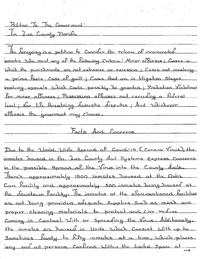 Petition To The Government
In Lee County Florida
The foregoing is a petition to consider the release of incarcerated
inmates who meet any of the following criteria: Minor offenses; Cases in
which the punishments are not extensive or excessive; Cases not rendering
a prima facie case of guilt; Cases that are in litigation stages
making appeals which could possibly be granted; Probation Violations
for minor offenses; Possession offenses not exceeding a
level; Non life threatening domestic disputes; And Whichever
offenses the government may choose.
Facts And Concerns
Due to the World Wide Spread of Covid-19 (Corona Virus), the
inmates housed in the Lee County Jail Systems express concerns
in the possible Spread of the Virus into the County Jails.
There's approximately 1500 inmates housed at the
Core Facility and approximately 500 inmates being housed at
the Downtown Facility. The inmates at the aforementioned facilities
are not being provided adequate supplies such as masks and
proper cleaning materials to protect and/or refuse
Coming in Contact With or Spreading the Virus. Additionally,
the inmates are housed in Units Which Consist With up to
Sometimes Twenty to fifty inmates at a time, which places
any and all persons confined within the limited space at